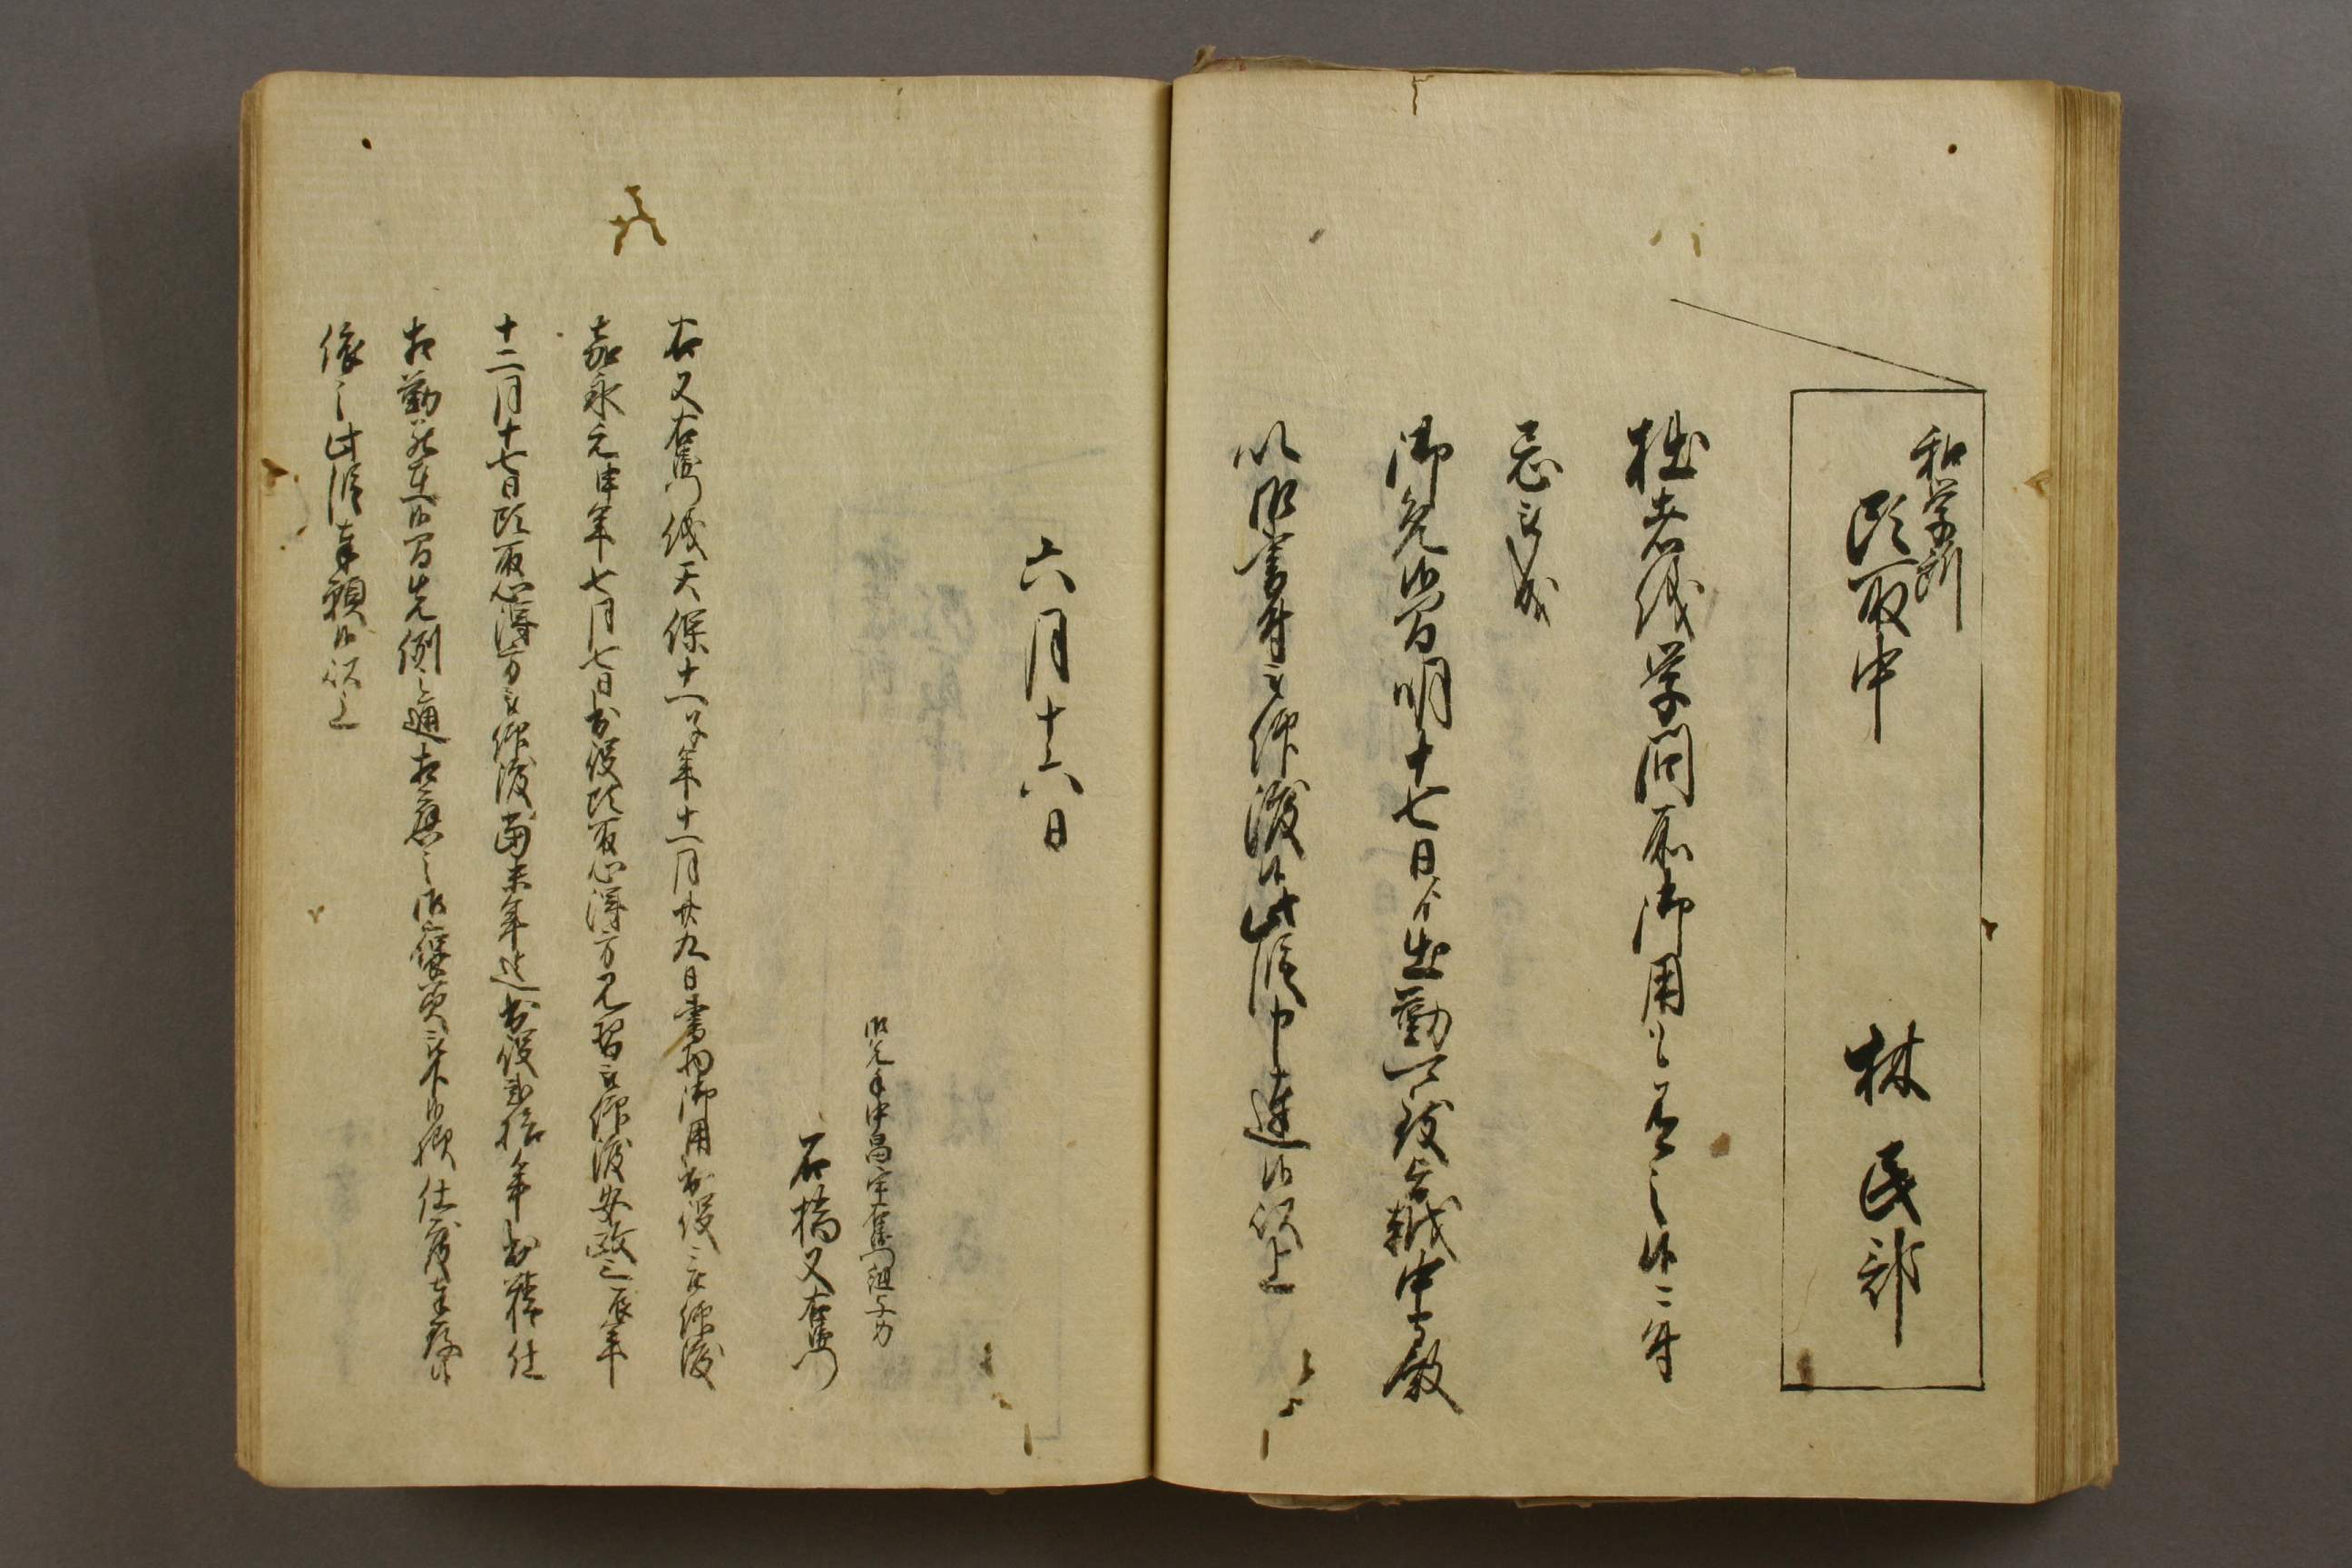 和学所
頭取中
林民部
拙者儀学問所御用も有之候ニ付
忌被成
御免候間明十七日ゟ出勤可致旨越中守殿
以御書付被仰渡候此段申達候以上
六月十六日
御先手中島定右衛門組与力
石橋又右衛門
右又右衛門儀天保十一子年十一月廿九日書物御用出役被仰渡
嘉永元申年七月七日出役頭取心得方見習被仰渡安政三辰年
十二月十七日頭取心得方被仰渡当未年迄出役弐拾年出精仕
相勤罷在候間先例之通相応之御褒美被下候様仕度奉存候
依之此段奉願候以上